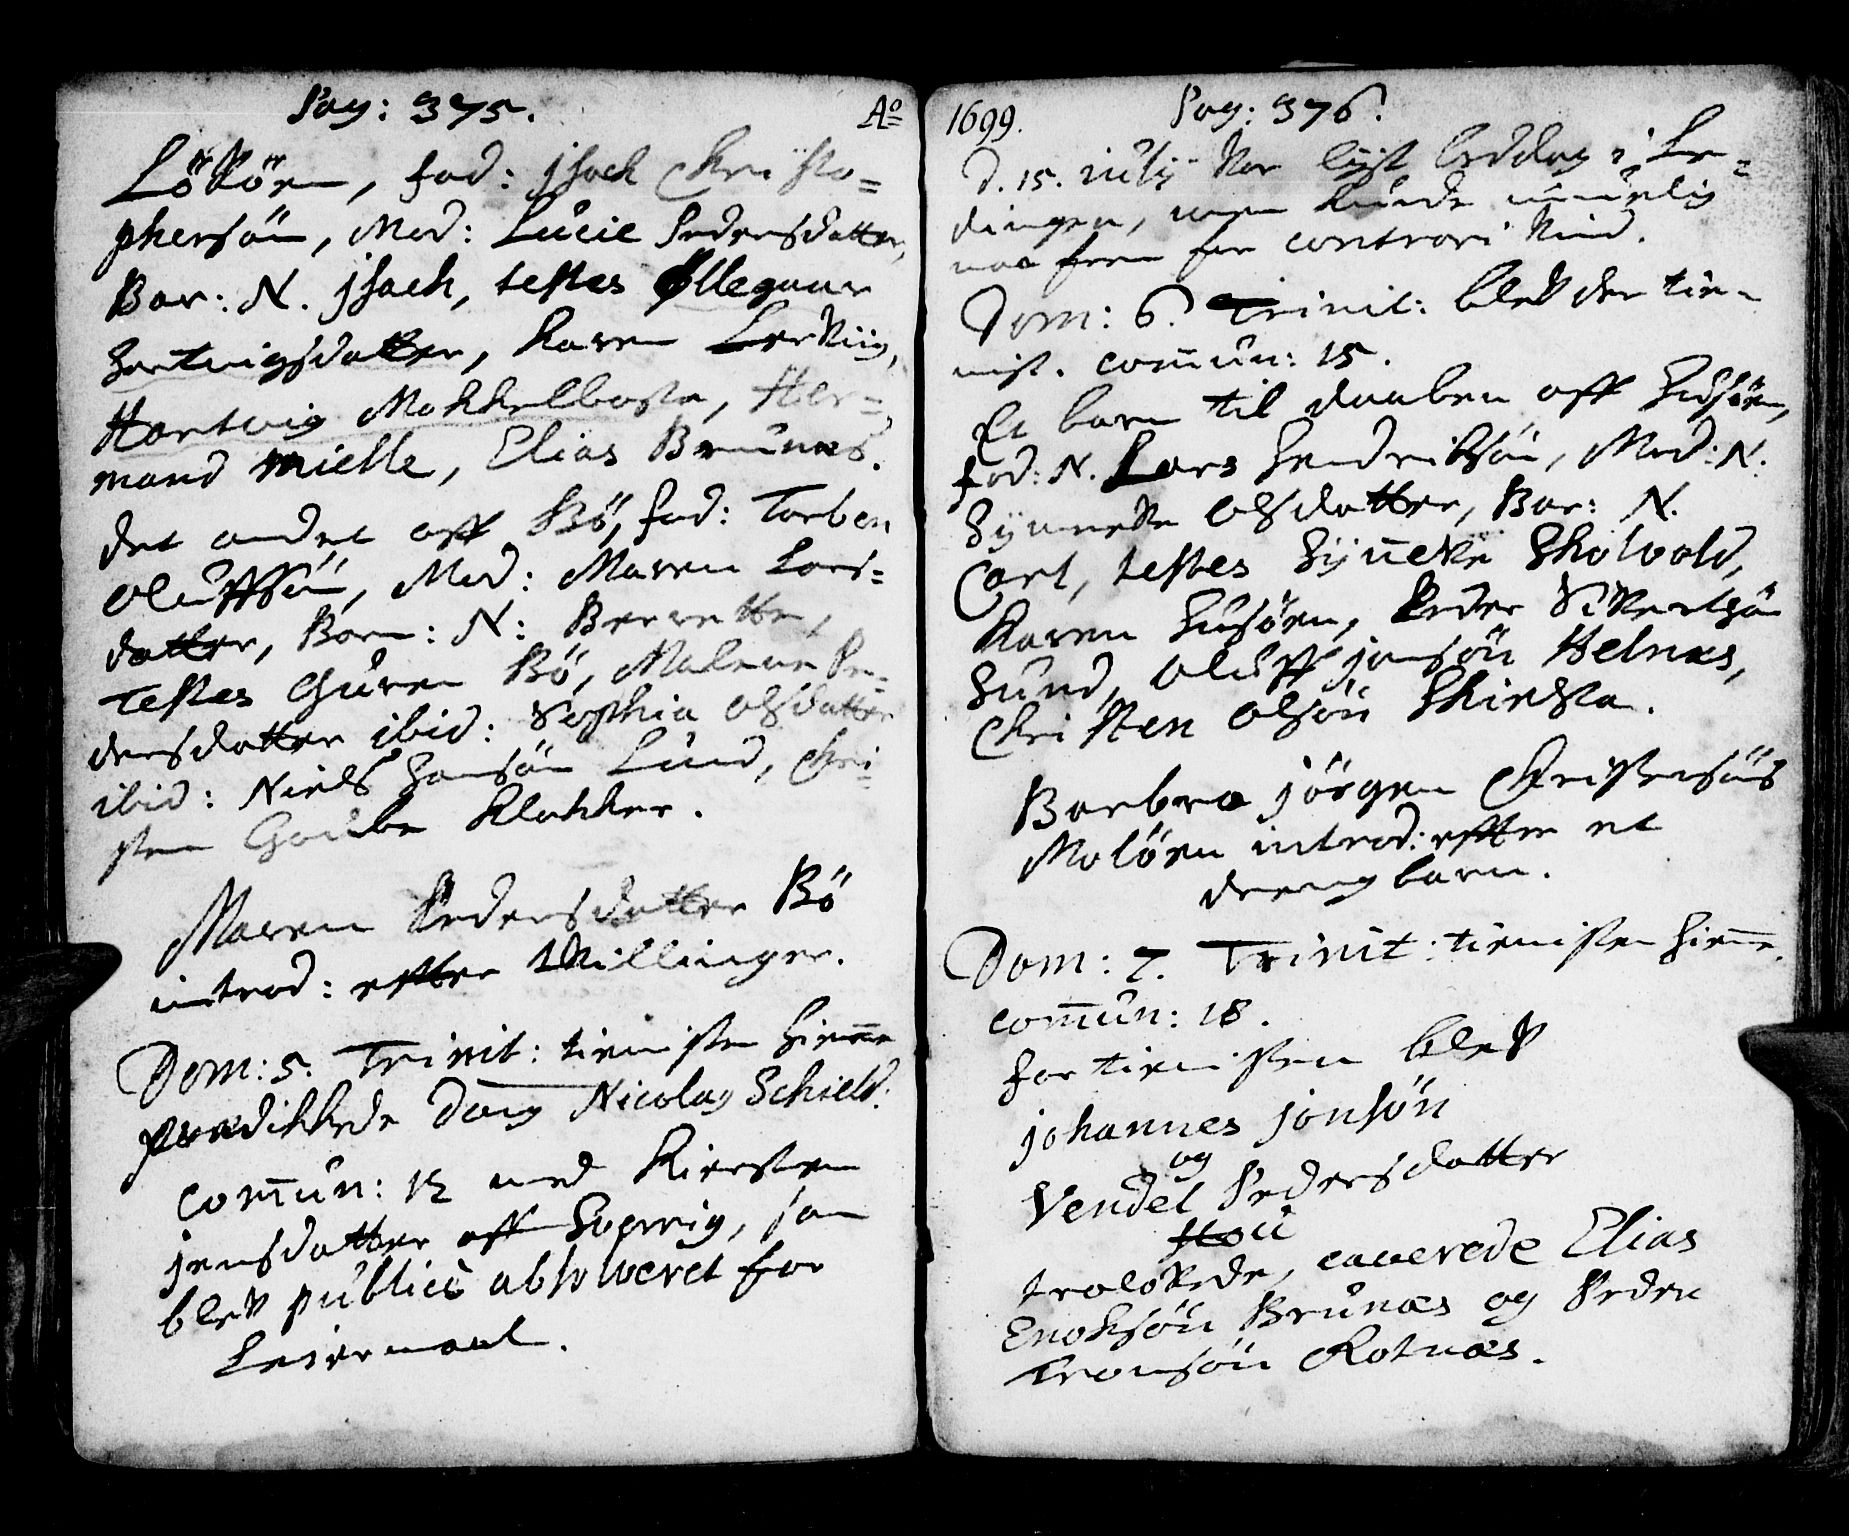 Pag: 375.
Aº
Lököen, fad: Jsach Christo=
phersön, Mod: Lucie Pedersdatter,
Bar: N. Jsach, testes Øllegaar
Hartvigsdatter, Karen Lerviig,
Hartvig Makkelboste, Her=
mand mielle, Elias Brunæs.
det andet aff Bö, fad: Torben
Oluffsön, Mod: Maren Lars=
datter, Barn: N: Berrette,
Testes Guren Bö, Malene Pe=
dersdatter ibid: Sophia Olsdatter
ibid: Niels Hansön Lund, Chri=
sten Klakker.
Maren Pedersdatter Bö
introd: efter tvillinger.
Dom: 5. Trinit: tienisten hieme
prædikkede Dom Nicolay Schield.
com̄un: 12 med Kiersten
jensdatter aff Hoprvig, som
blev publicè absolveret for
Leiermaal.
1699.
Pag: 376.
D. 15. iulij var lyst beddag i Le=
dingen, men kunde umuelig
naa frem for contrari vind.
Dom: 6. Trinit: blev der tie=
nist. com̄un: 15.
Et barn til daaben aff Husöen,
fad: N. Lars Hendriksön, Mod: N.
Synneve Olsdatter, Bar: N.
Carl, testes Synneve Skolvold,
Karen Husöen, Peder Siversön
Sund, Oluff jonsön Helnæs,
Christen Olsön Skiesta.
Barbra jörgen Christensöns
Molöen introd: effter et
drengbarn.
Dom: 7. Trinit: tienisten hieme.
com̄un: 18.
for tienisten blev
johannes jonsön
og
Vendel Pedersdatter
trolovede, caverede Elias
Enoksön Brunæs og Peder
Tromsön Rotnæs.